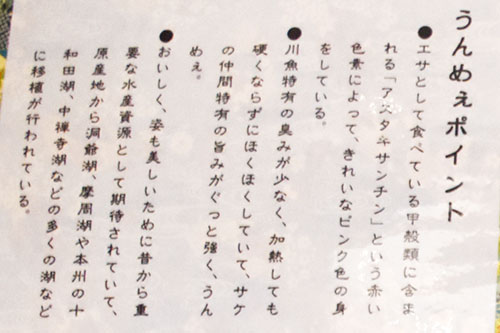 うんめぇポイント
●エサとして食べている甲殻類に含ま
れる「アスタキサンチン」という赤い
色素によって、きれいなピンク色の身
をしている。
●川魚特有の臭みが少なく、加熱しても
硬くならずにほくほくしていて、サケ
の仲間特有の旨みがぐっと強く、うん
めぇ。
●おいしく、姿も美しいために昔から重
要な水産資源として期待されていて、
原産地から洞爺湖、摩周湖や本州の十
和田湖、中禅寺湖などの多くの湖など
に移植が行われている。